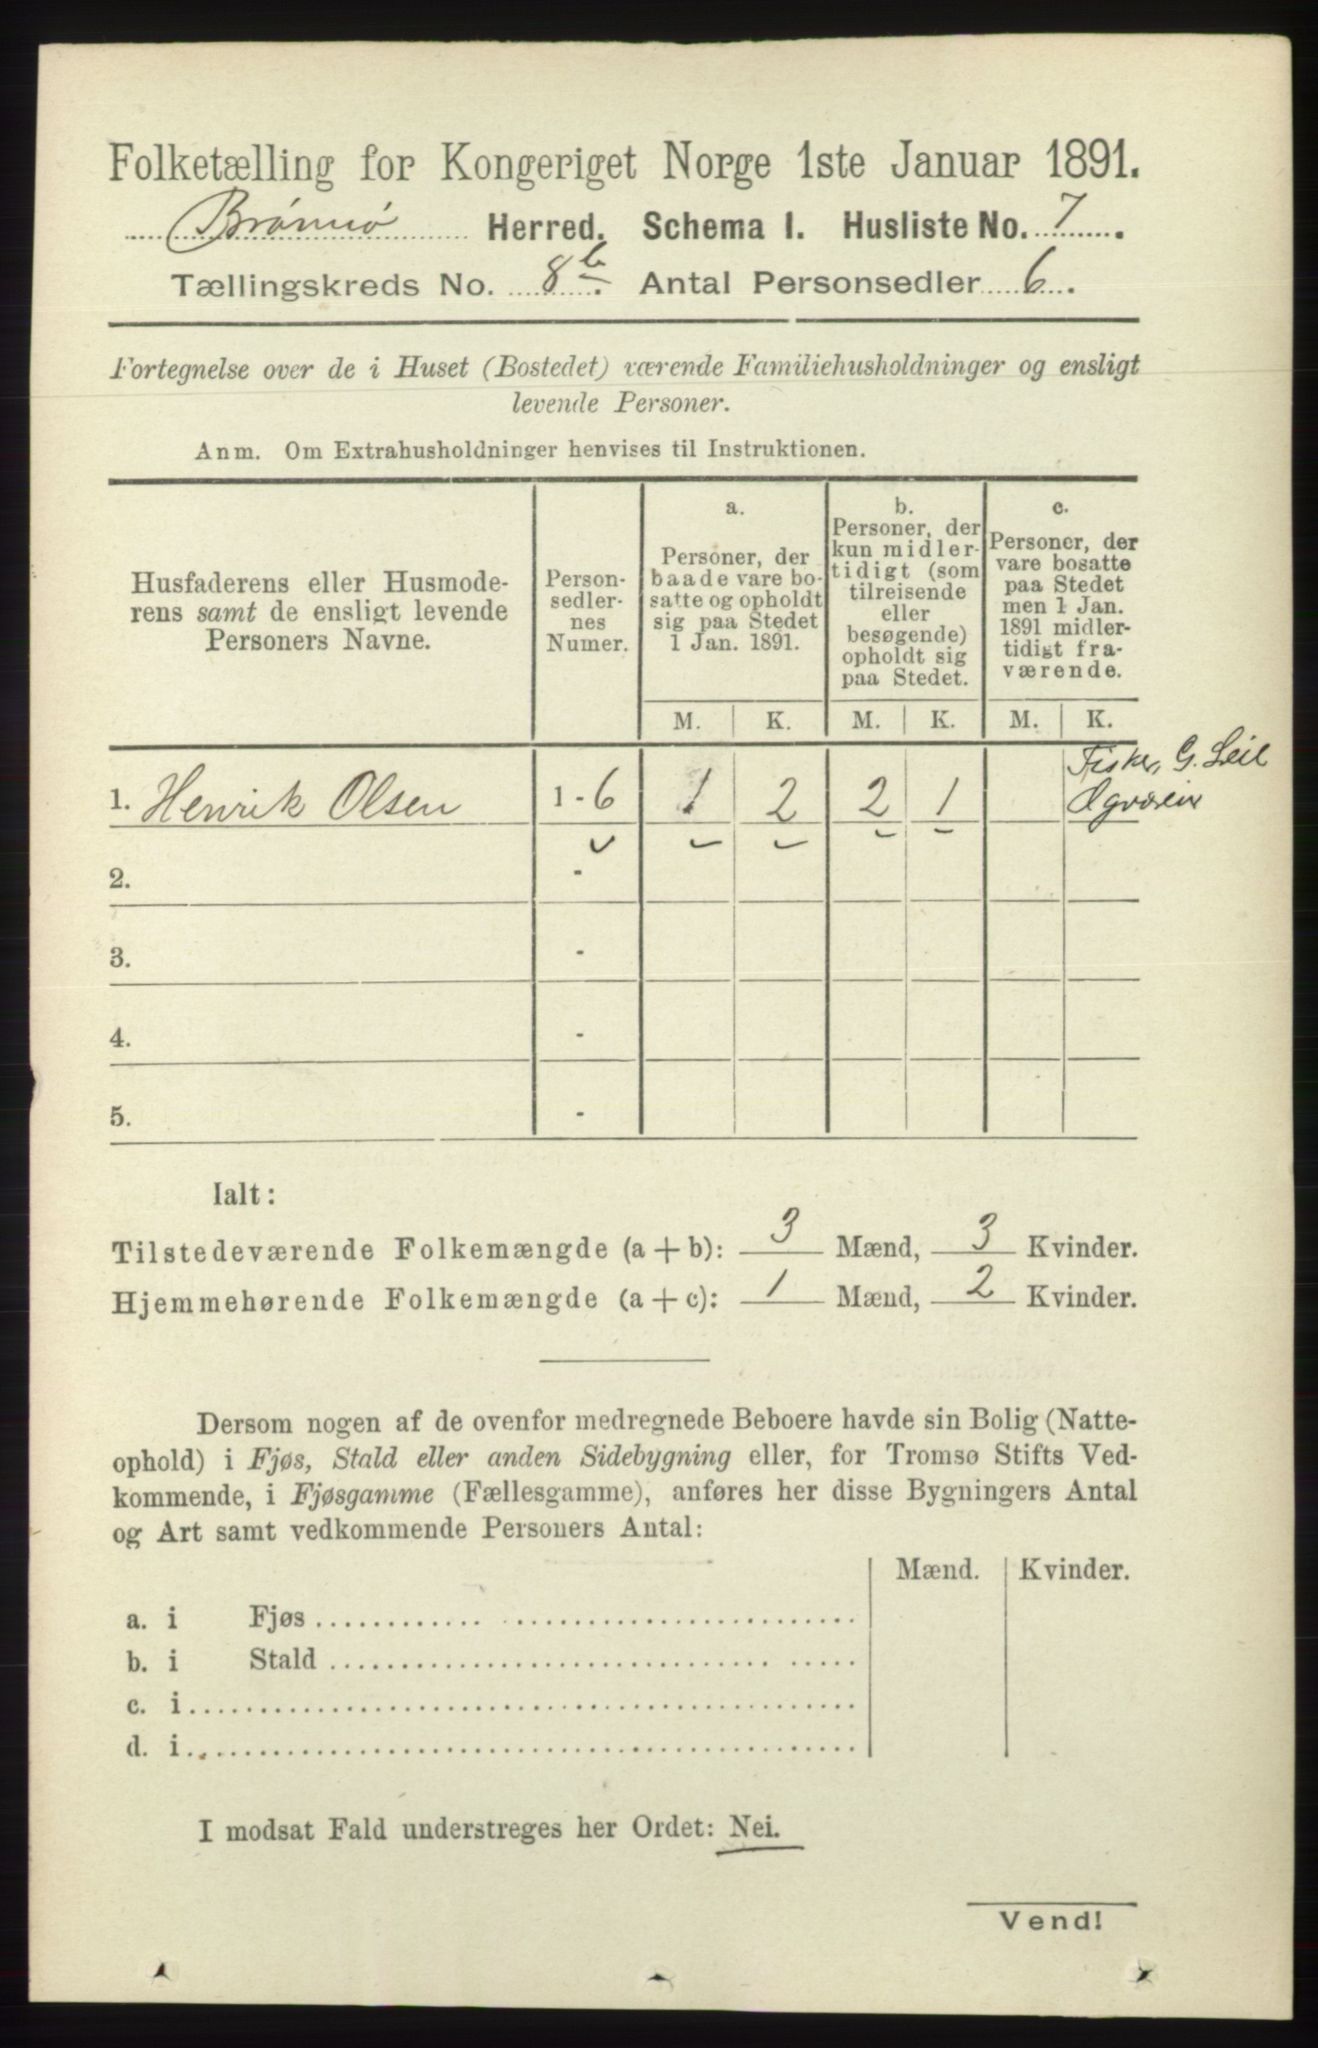 Folketælling for Kongeriget Norge 1ste Januar 1891.
Brønnø Herred. Schema I. Husliste No. 7.
Tællingskreds No. 8b. Antal Personsedler 6.
Fortegnelse over de i Huset (Bostedet) værende Familiehusholdninger og ensligt
levende Personer.
Anm. Om Extrahusholdninger henvises til Instruktionen.
Husfaderens eller Husmode-
rens samt de ensligt levende
Personers Navne.
Person-
sedler-
nes
Numer.
a.
Personer, der
baade vare bo-
satte og opholdt
sig paa Stedet
1 Jan. 1891.
b.
Personer, der
kun midler-
tidigt (som
tilreisende
eller
besøgende)
opholdt sig
paa Stedet.
c.
Personer, der
vare bosatte
paa Stedet
men 1 Jan.
1891 midler-
tidigt fra-
værende.
M. K. M. K. M. K.
Fisker, G. Leil
1. Henrik Olsen 1 - 6 1 2 2 1
2. -
3. -
4. -
5. -
Ialt:
Tilstedeværende Folkemængde (a + b): 3 Mænd, 3 Kvinder.
Hjemmehørende Folkemængde (a + c): 1 Mænd, 2 Kvinder.
Dersom nogen af de ovenfor medregnede Beboere havde sin Bolig (Natte-
ophold) i Fjøs, Stald eller anden Sidebygning eller, for Tromsø Stifts Ved-
kommende, i Fjøsgamme (Fællesgamme), anføres her disse Bygningers Antal
og Art samt vedkommende Personers Antal:
Mænd. Kvinder.
a. i Fjøs
b. i Stald
c. i
d. i
I modsat Fald understreges her Ordet: Nei.
Vend!